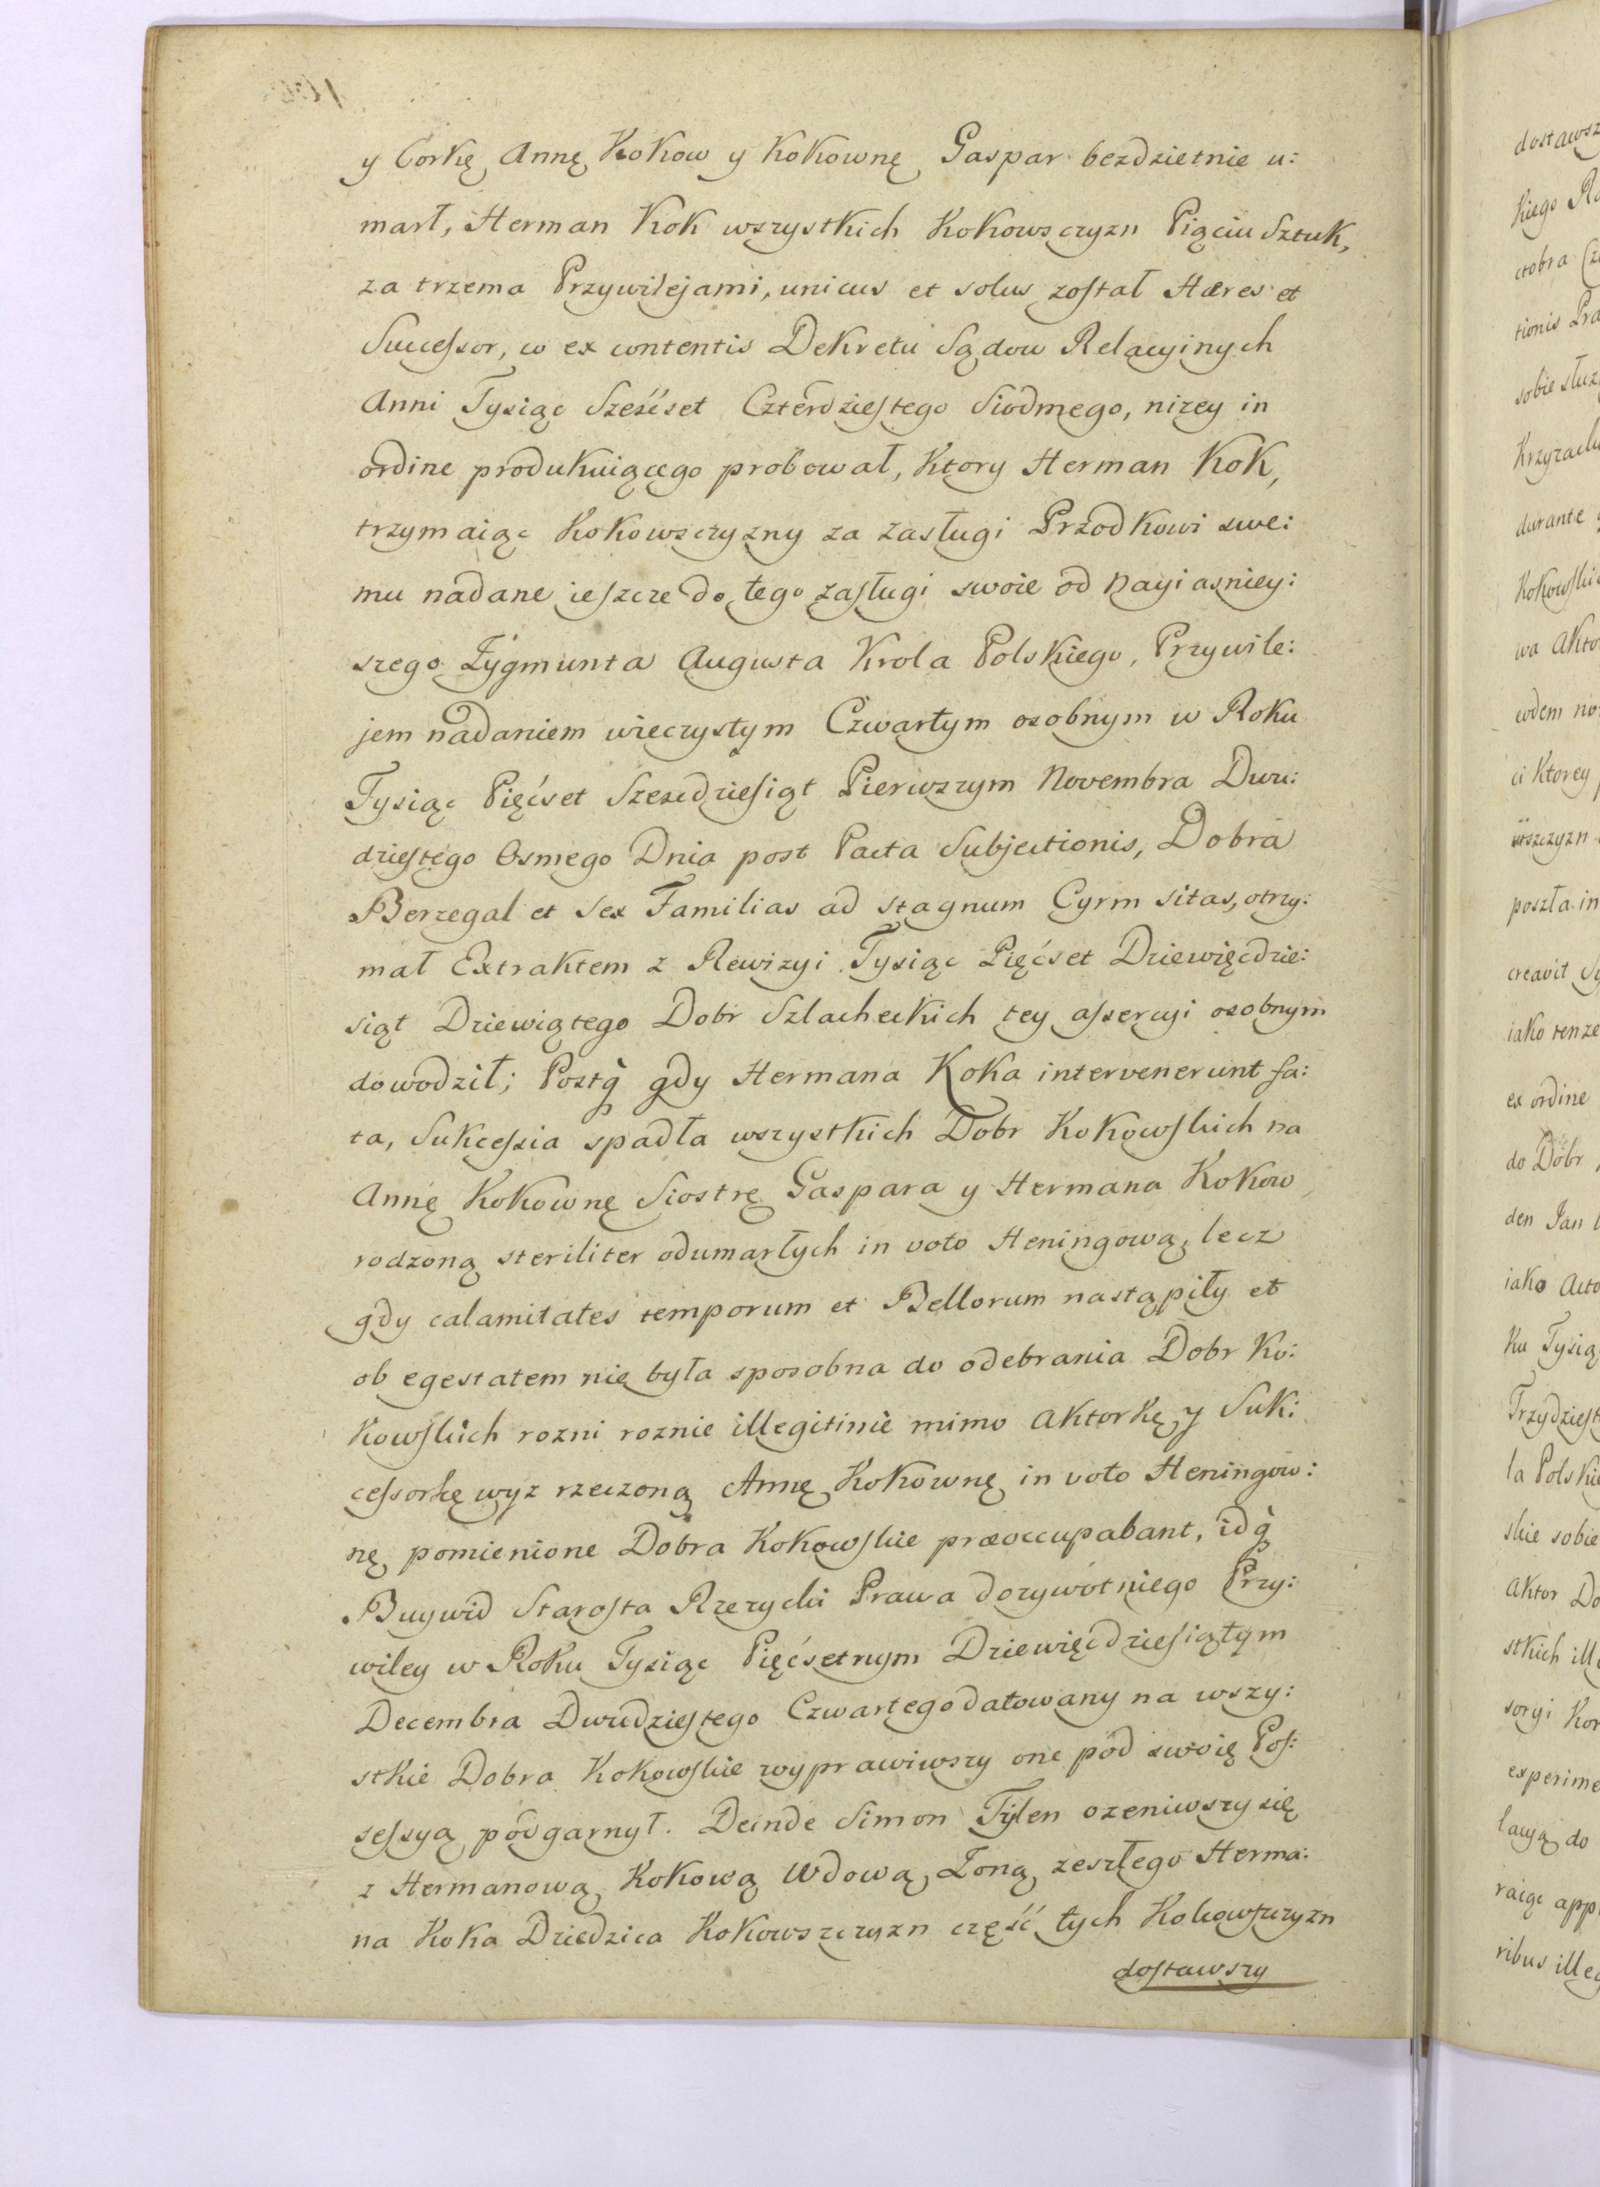 y Corkę Annę Kokow y Kokownę Gaspar bezdzietnie u:
marł, Herman Kok wszystkich Kokowsczyzn Pięciu Sztuk,
za trzema Przywilejami, unicus et solus został Hæres et
Successor, w ex contentis Dekretu Sądow Relacyinych
Anni Tysiąc Sześćset Czterdziestego Siodmego, nizey in
ordine produkuiącego probował, Ktory Herman Kok,
trzymaiąc Kokowszczyzny za zasługi Przodkowi swe:
mu nadane ieszcze do tego zasługi swoie od Nayiasniey:
szego Zygmunta Augusta Krola Polskiego, Przywile:
jem nadaniem wieczystym Czwartym osobnym w Roku
Tysiąc Pięćset Szescdziesiąt Pierwszym Novembra Dwu:
dziestego Osmego Dnia post Pacta Subjectionis, Dobra
Berzegal et sex Familias ad stagnum Cyrm sitas, otrzy:
mał Extraktem z Rewizyi Tysiąc Pięćset Dziewięcdzie:
siąt Dziewiątego Dobr Szlacheckich tey assercyi osobnym
dowodził; Postq̃ gdy Hermana Koka intervenerunt fa:
ta, Sukcessia spadła wszystkich Dobr Kokowskich na
Annę Kokownę Siostrę Gaspara y Hermana Kokow
rodzoną steriliter odumarłych in voto Heningową, lecz
gdy calamitates temporum et Bellorum nastąpiły et
ob egestatem nie była sposobna do odebrania Dobr Ko:
kowskich rozni roznie illegitinie mimo Aktorkę y Suk:
cessorkę wyz rzeczoną Annę Kokownę in voto Heningow:
nę pomienione Dobra Kokowskie præoccupabant, idq̃
Buywid Starosta Rzezycki Prawa dozywotniego Przy:
wiley w Roku Tysiąc Pięćsetnym Dziewięćdziesiątym
Decembra Dwudziestego Czwartego datowany na wszy:
stkie Dobra Kokowskie wyprawiwszy one pod swoię Pos:
sessyą podgarnył. Deinde Simon Tylen ozeniwszy się
z Hermanową Kokową Wdową, Zoną zeszłego Herma:
na Koka Dziedzica Kokowszczyzn część tych Kokowszczyzn
dostawszy
dostawsz
sobie służ
durante
wa Akto
ci Ktorey
poszła in
iako tenze
ex ordine
do Dobr
den Jan
iako Acto
ku Tysią
Trzydziest
la Polski
skie sobie
Aktor Do
stkich ill
soryi Kor
experime
lacyą do
raiąc app
ribus illeg